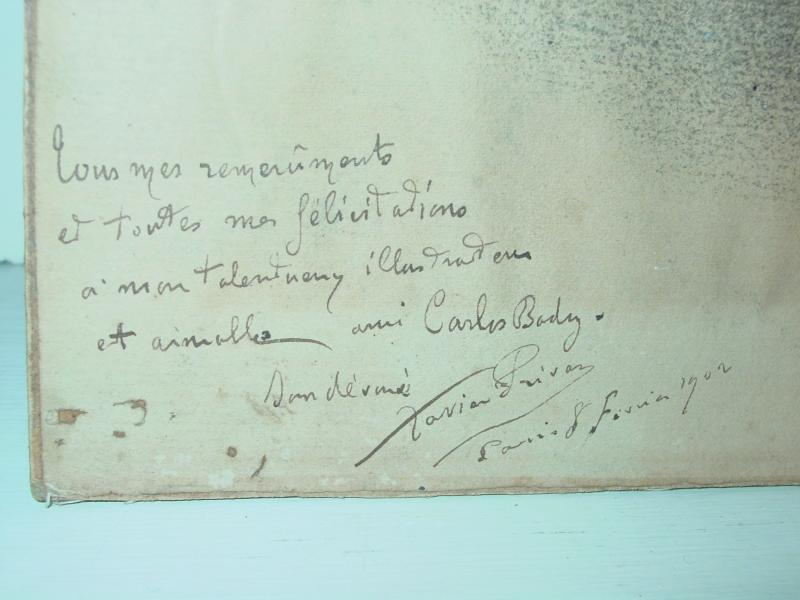 Tous mes remerciments
et toutes mes félicitations
à mon talentueux illustrateur
et aimable ami Carlos Bady.
Son dévoué
Xavier Privas
Paris 8 Février 1902